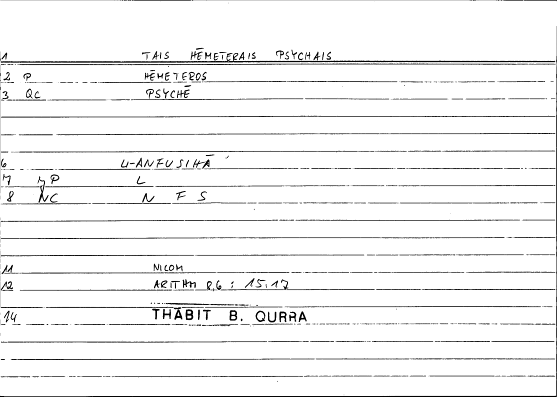 1 TAIS HĒMETERAIS PSYCHAIS
2 P HĒMETEROS
3 QC PSYCHĒ
6 LI-ANFUSIHĀ
7 MP L
8 NC N F S
11 NICOM
12 ARITHM 8,6 : 15.17
14 THĀBIT B. QURRA